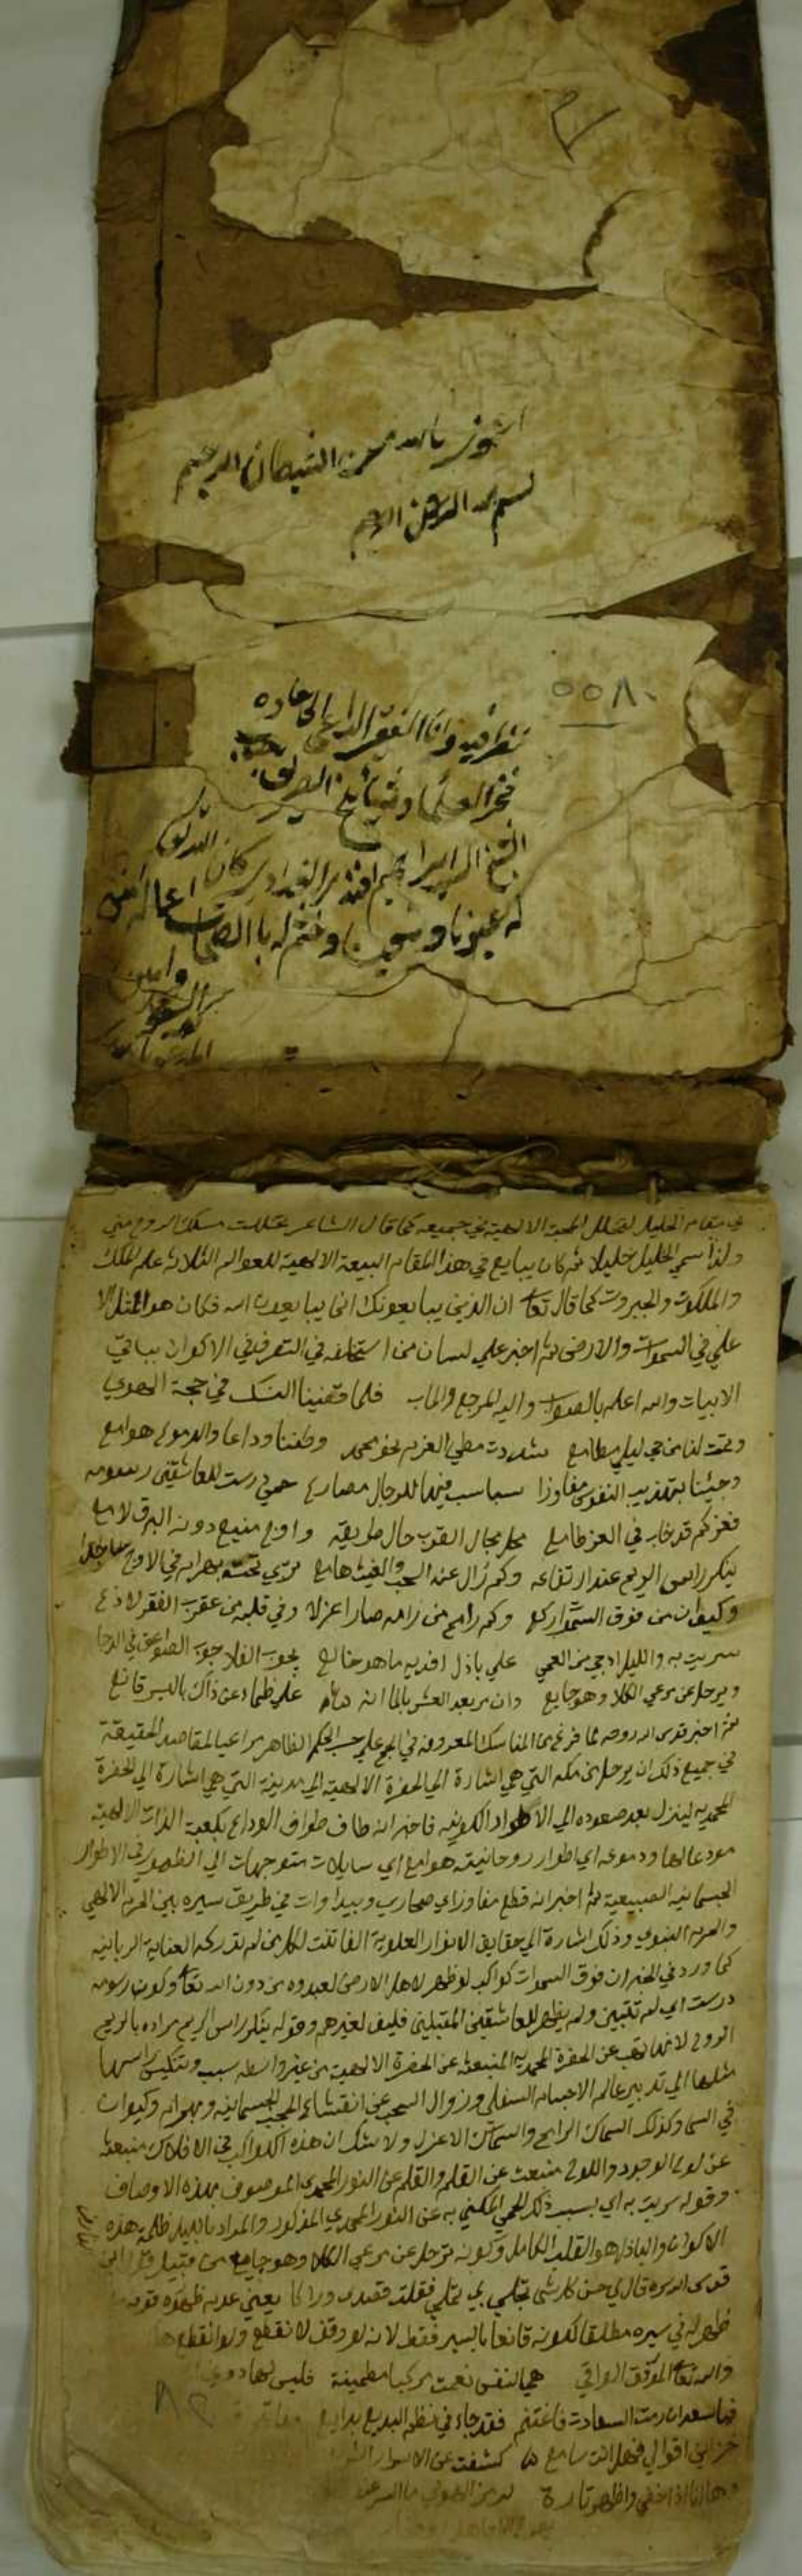 اعوذ بالله من الشيطان الرجيم
بسم الله الرحمن الرحيم
٥٥٨٠
نظر فيه وانا الفقير الداعي
فخر العلما
الشيخ السيد ابراهيم افندي البغدادي كان الله له
له عيوبنا وختم له با الصالحات اعماله
في مقام الخليل لتخلل المحبة الالهية في جميعه كما قال الشاعر تخللت مسلك الروح مني
ولذا سمي الخليل خليلا ثم كان يبايع في هذا المقام البيعة الالهية للعوالم الثلاثة علم الملك
والملكوت والجبروت كما قال تعا ان الذين يبايعونك انما يبايعون الله فكان هو المثل الا
علي في السموات والارض ثم اخبر علي لسان من استخلفه في التصرف في الاكوان بباقي
الابيات والله اعلم بالصواب واليه المرجع والماب فلما قضينا النسك في حجة الهوي
وتمت لنا من حي ليلي مطامع شددت مطي العزم نحو محمد وطفنا وداعا والدموع هوامع
وجئنا بتهذيب النفوس مفاوزا سباسب فيها للرجال مصارع حمي درست للعاشقين رسومه
فعز كم قد خاب في العز طامع محل مجال القرب حال طريقه واوج منيع دونه البرق لامع
ينكس راس الريح عند ارتفاعه وكم زال عنه السحب والغيث هامع تري تحته بهرام في الاوج ساجدا
وكيوان من فوق السموات راكع وكم رامح من رامه صار اعزلا وفي قلبه من عقرب العقر لاذع
سريت به والليل ادجي من العمي علي باذل افديه ما هو خالع يجوب الفلا جوب الصواعق في الدجا
ويرحل عن مرعي الكلا وهو جايع وان مر بعد العشر بالماء انه علي ظماء عن ذاك بالسير قانع
ثم اخبر قدس الله روحه لما فرغ من المناسك المعروفة في الحج علي حسب الحكم الظاهر مراعيا للمقاصد الحقيقة
في جميع ذلك ان يرحل من مكة التي هي اشارة الي الحضرة الالهية الي المدينة التي هي اشارة الي الحضرة
المحمدية لينزل بعد صعوده الي الاطوار الكونية فاخبر انه طاف طواف الوداع بكعبة الذات الالهية
مودعا لها ودموعه اي اطوار روحانيته هوامع اي سايلات متوجهات الي الظهور في الاطوار
الجسمانية الطبيعية ثم اخبر انه قطع مفاوز اي صحاري وبيداوات في طريق سيره بين الحرم الالهي
والحرم النبوي وذلك اشارة الي حقايق الانوار العلوية الفاتنة لكل من لم تدركه العناية الربانية
كما ورد في الخبر ان فوق السموات كواكب لو ظهر لاهل الارض لعبدوه من دون الله تعا وكون رسومه
درست اي لم تتبين ولم يظهر للعاشقين المقبلين فكيف لغيرهم وقوله ينكس راس الريح مراده بالريح
الروح لانها تهب عن الحضرة المحمدية المنبعثة عن الحضرة الالهية من غير واسطة سبب وتنكيس راسها
مثلها الي تدبير عالم الاجسام السفلي وزوال السحب عن انقشاع الحجب الجسمانية وبهرام وكيوان
في السما وكذلك السماك الرامح والسماك الاعزل ولا شك ان هذه الكواكب في الافلاك منبعثة
عن لوح الوجود واللوح منبعث عن القلم والقلم عن النور المحمدي الموصوف بهذه الاوصاف
وقوله سريت به اي بسبب ذلك الحمي المكني به عن النور المحمدي المذكور والمراد بالليل ظلمة هذه
الاكوان والباذل هو القلب الكامل وكونه يرحل عن مرعي الكلا وهو جايع من قبيل
قدس الله سره قال لي حسن كل شي تجلي بي تملي فقلت قصدي وراكا يعني
ظهر له في سيره مطلقا لكونه قانعا بالسير فقط لانه لو وقف لانقطع ولو انقطع
والله تعا الموفق الواقي هي النفس نعمت مركبا مطمئنة فليس لها دون
فيا سعد ان رمت السعادة فاغتنم فقد جاء في نظم البديع بدايع
خزاين اقوالي فهل انت سامع كشفت عن الاسرار
وها انا ذا اخفي واظهر تارة لرمز الهوي ما السر عن